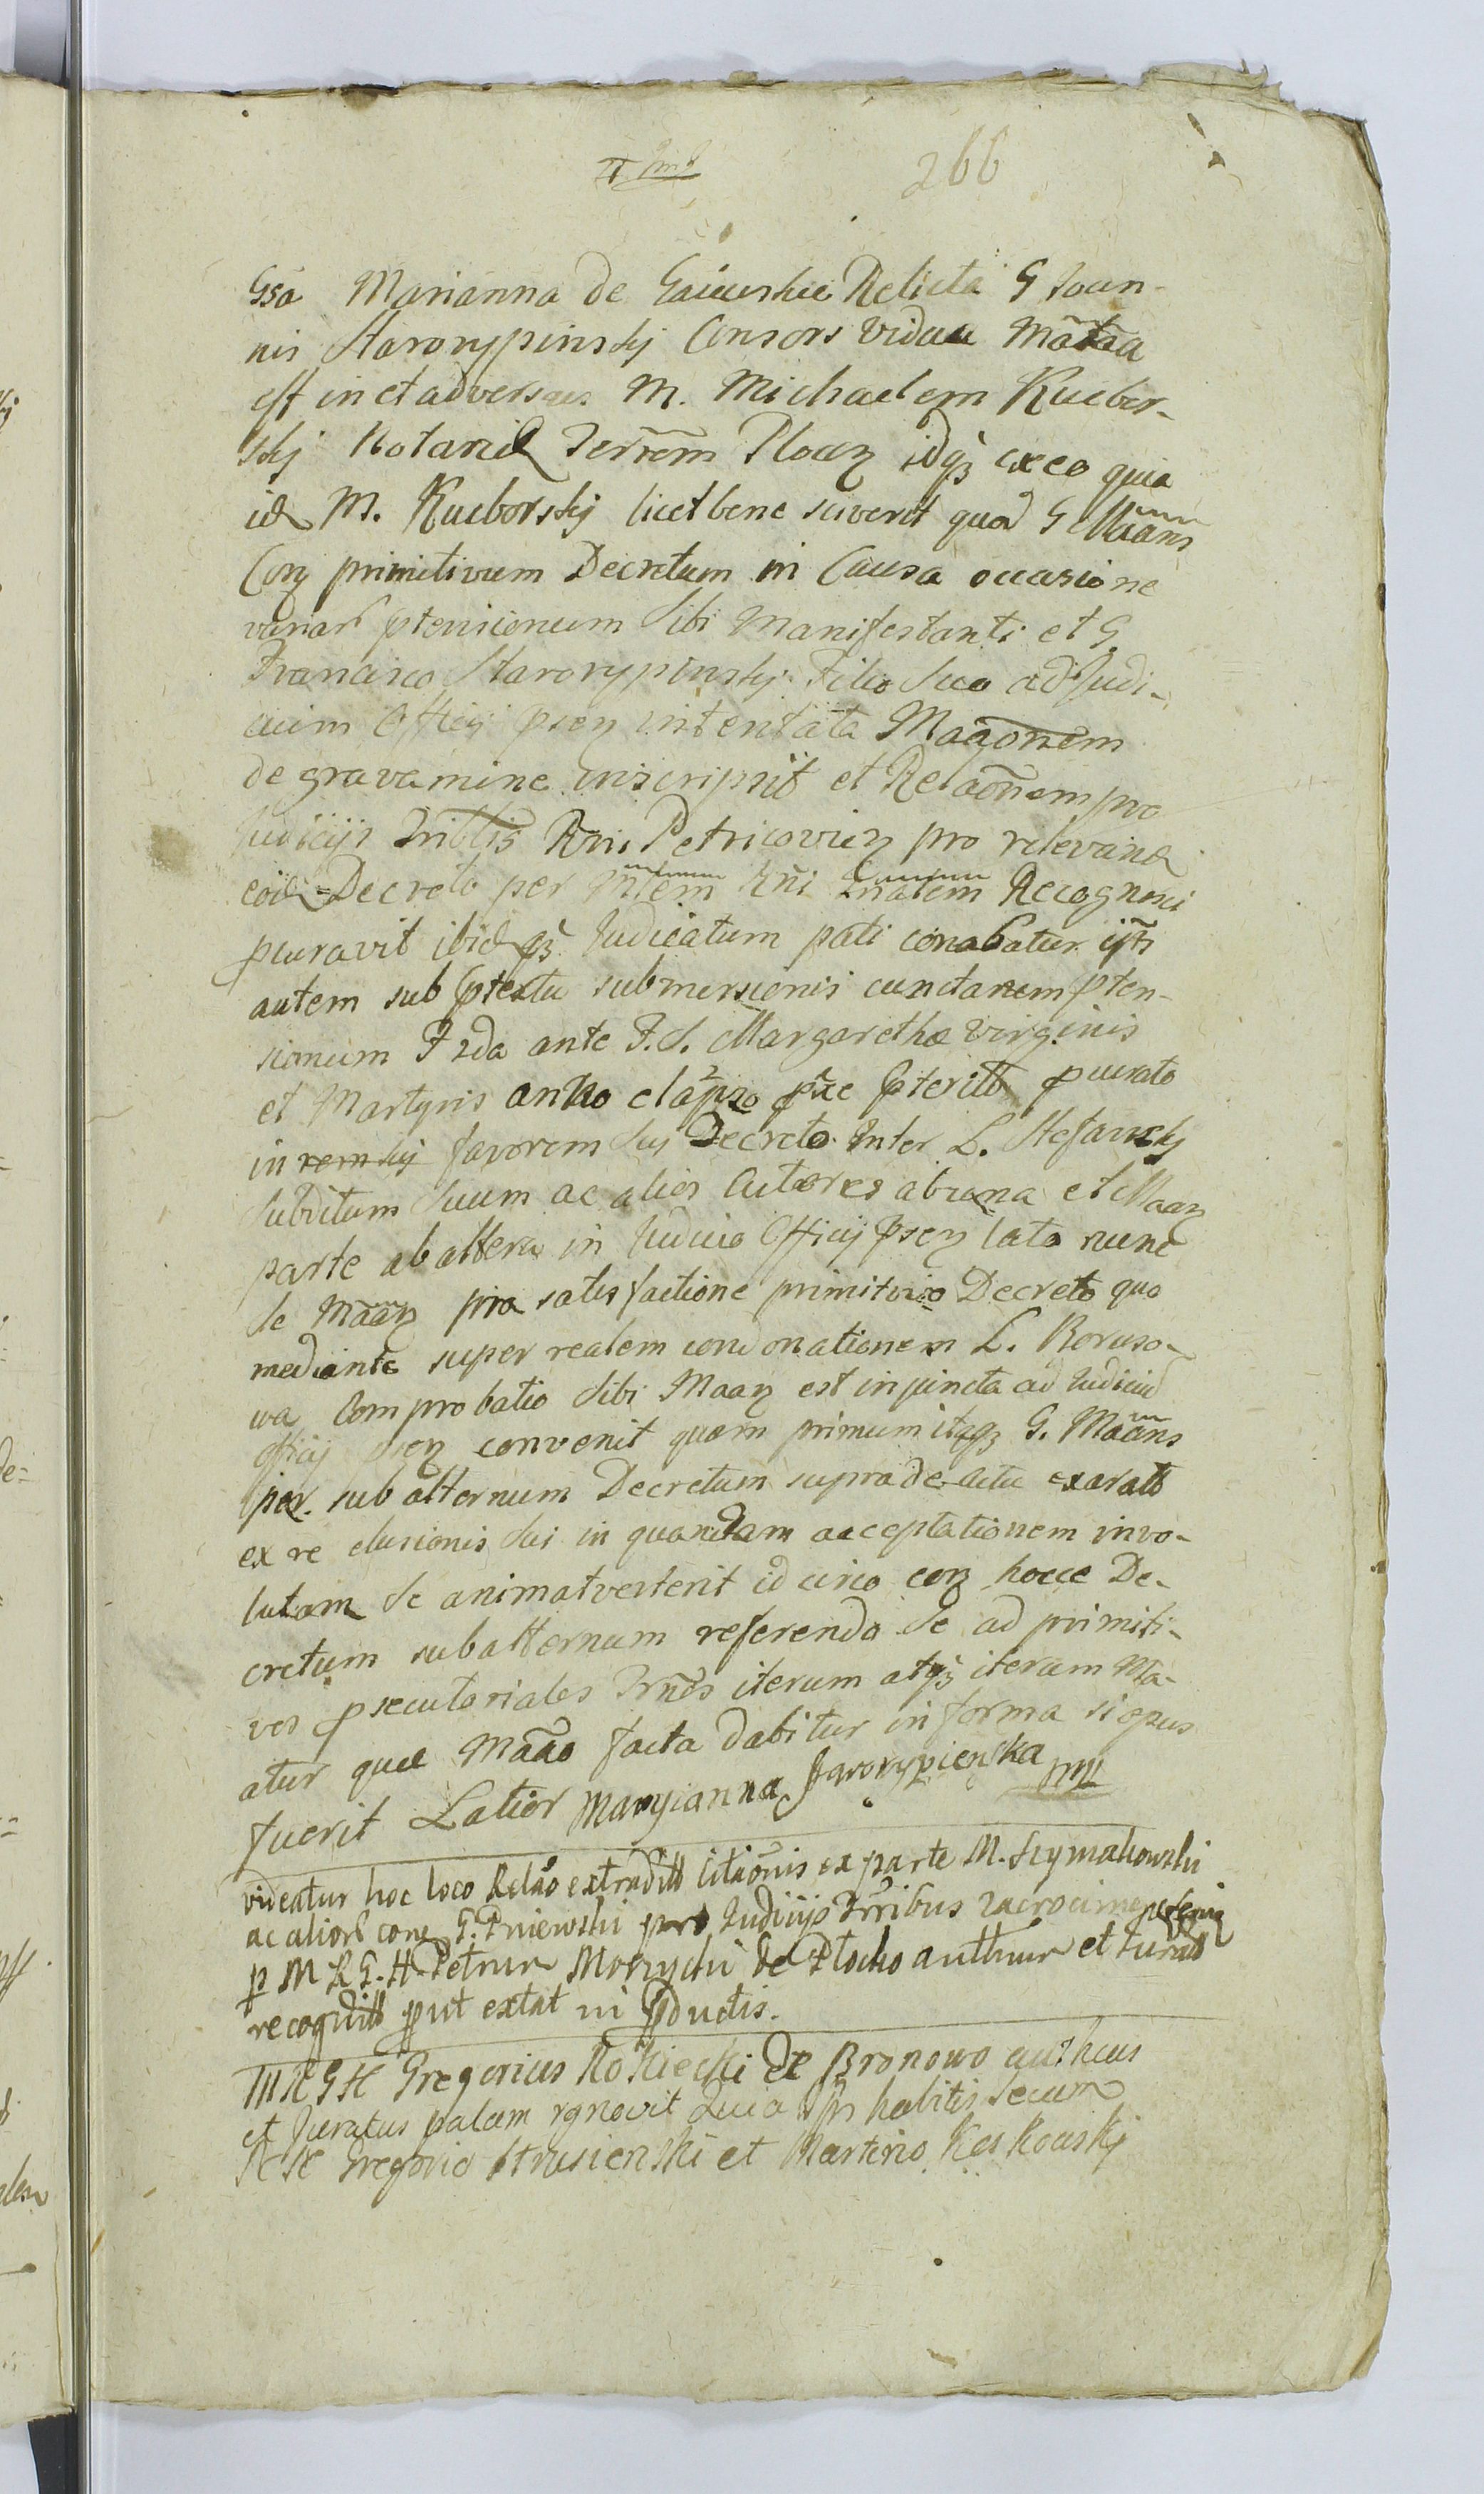 266
Gsa Marianna de Relicta G Joan-
nis Starorypinskj Consors Vidua Mãtãa
est in et adversus M. Michaelem Kuebor-
skj Notariũ Terrẽm Plocz idqz ex eo quia
id M. Kueborskj licet bene sciverit quod G Mãans
Corz primitivum Decretum in Causa occasione
variar ptensionum Sibi Manifestanti et G
Francisco Starorypinskj Filio Suo ad Judi-
cium Officij psen intentata Maãonem
de gravamine inscripsit et Relaõnem pro
Judicijs Triblis Rni Petricovien pro relevand
eod Decreto per Mtem Rñi Recognosci
pcuravit ibidqz Judicatum pati conabatur
autem sub ptextu submersionis cunctarem pten-
sionum F 2da ante F. S. Margarethæ Virginis
et Martyris anno elãpso pterito pcurato
in favorem Suj Decreto Inter L. Stefanskj
Subditum Suum ac alios Actores ab una et Maan
parte ab altera in Judicio Officij psen lato nunc
se Maan pro satisfactione primitivo Decreto quo
mediante super realem condonationem L. Boruso-
wa Comprobatio Sibi Maan est injuncta ad Judiciũ
Officij psen convenit quam primum itaqz G. Mãans
per subalternum Decretum supra de actu exarato
ex re elusionis Sui in quandam acceptationem invo-
lutam Se animatverterit id circo corz hocce De-
cretum subalternum referendo Se ad primiti-
vos psecutoriales Trmos iterum atqz iterum Ma-
atur quæ Mããõ facta dabitur in forma si opus
fuerit Latior Maryianna Starorypienska mp
videatur hoc loco Relão extradit Citaõnis ex parte M. Szymakowski
ac alior cora G. Pniewski pro Judicijs Trribus
p M R G. H. Petrum Moczycki de Plocko authum et Jurat
recognit put extat in pductis.
M R G H Gregorius Rokicki de Bronowo autheus
et Juratus palam rgnovit Quia Ips habitis Secum
N N Gregorio Strusienski et Martino Koskowskj